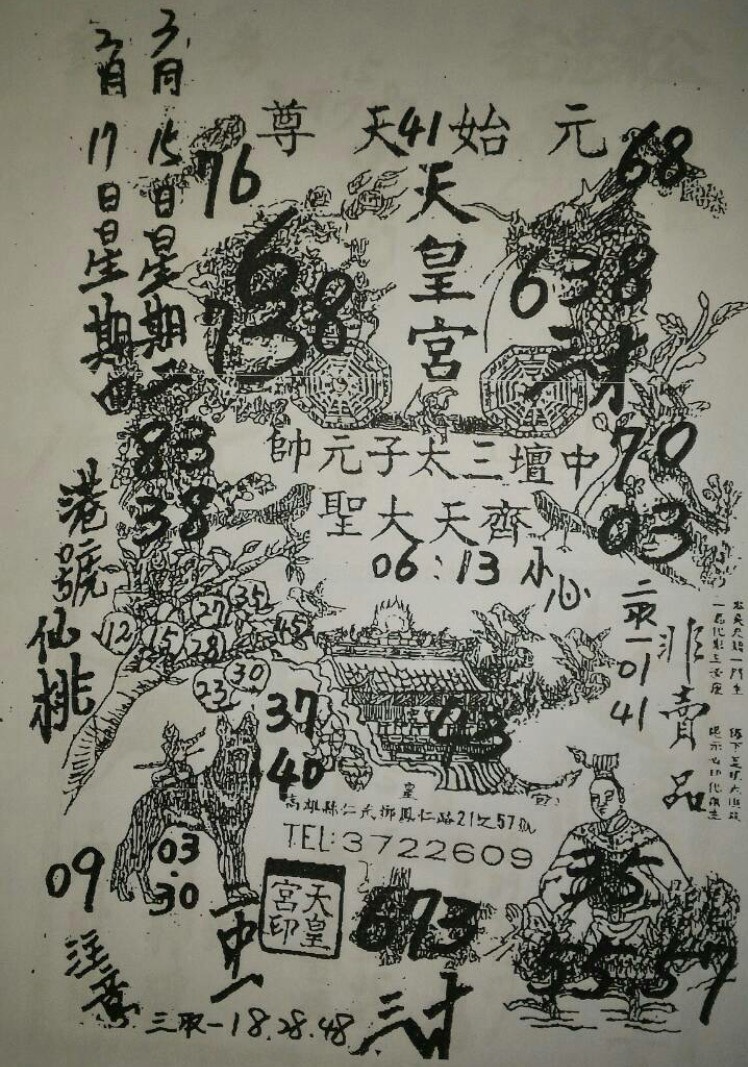 元始天尊
41
天皇宮
中壇三太子元帥
齊天大聖
06:13 小心
3月15日星期二
2月17日星期四
76
68
6
738
638
三才
83
38
70
03
港號
仙桃
35
27
45
12
15
28
30
23
37
40
43
二取一
01
41
非賣品
高雄縣仁武鄉鳳仁路21之57號
TEL:3722609
03
30
09
天皇宮印
673
35
35 57
注意
一中一
三取一18.28.48
三才